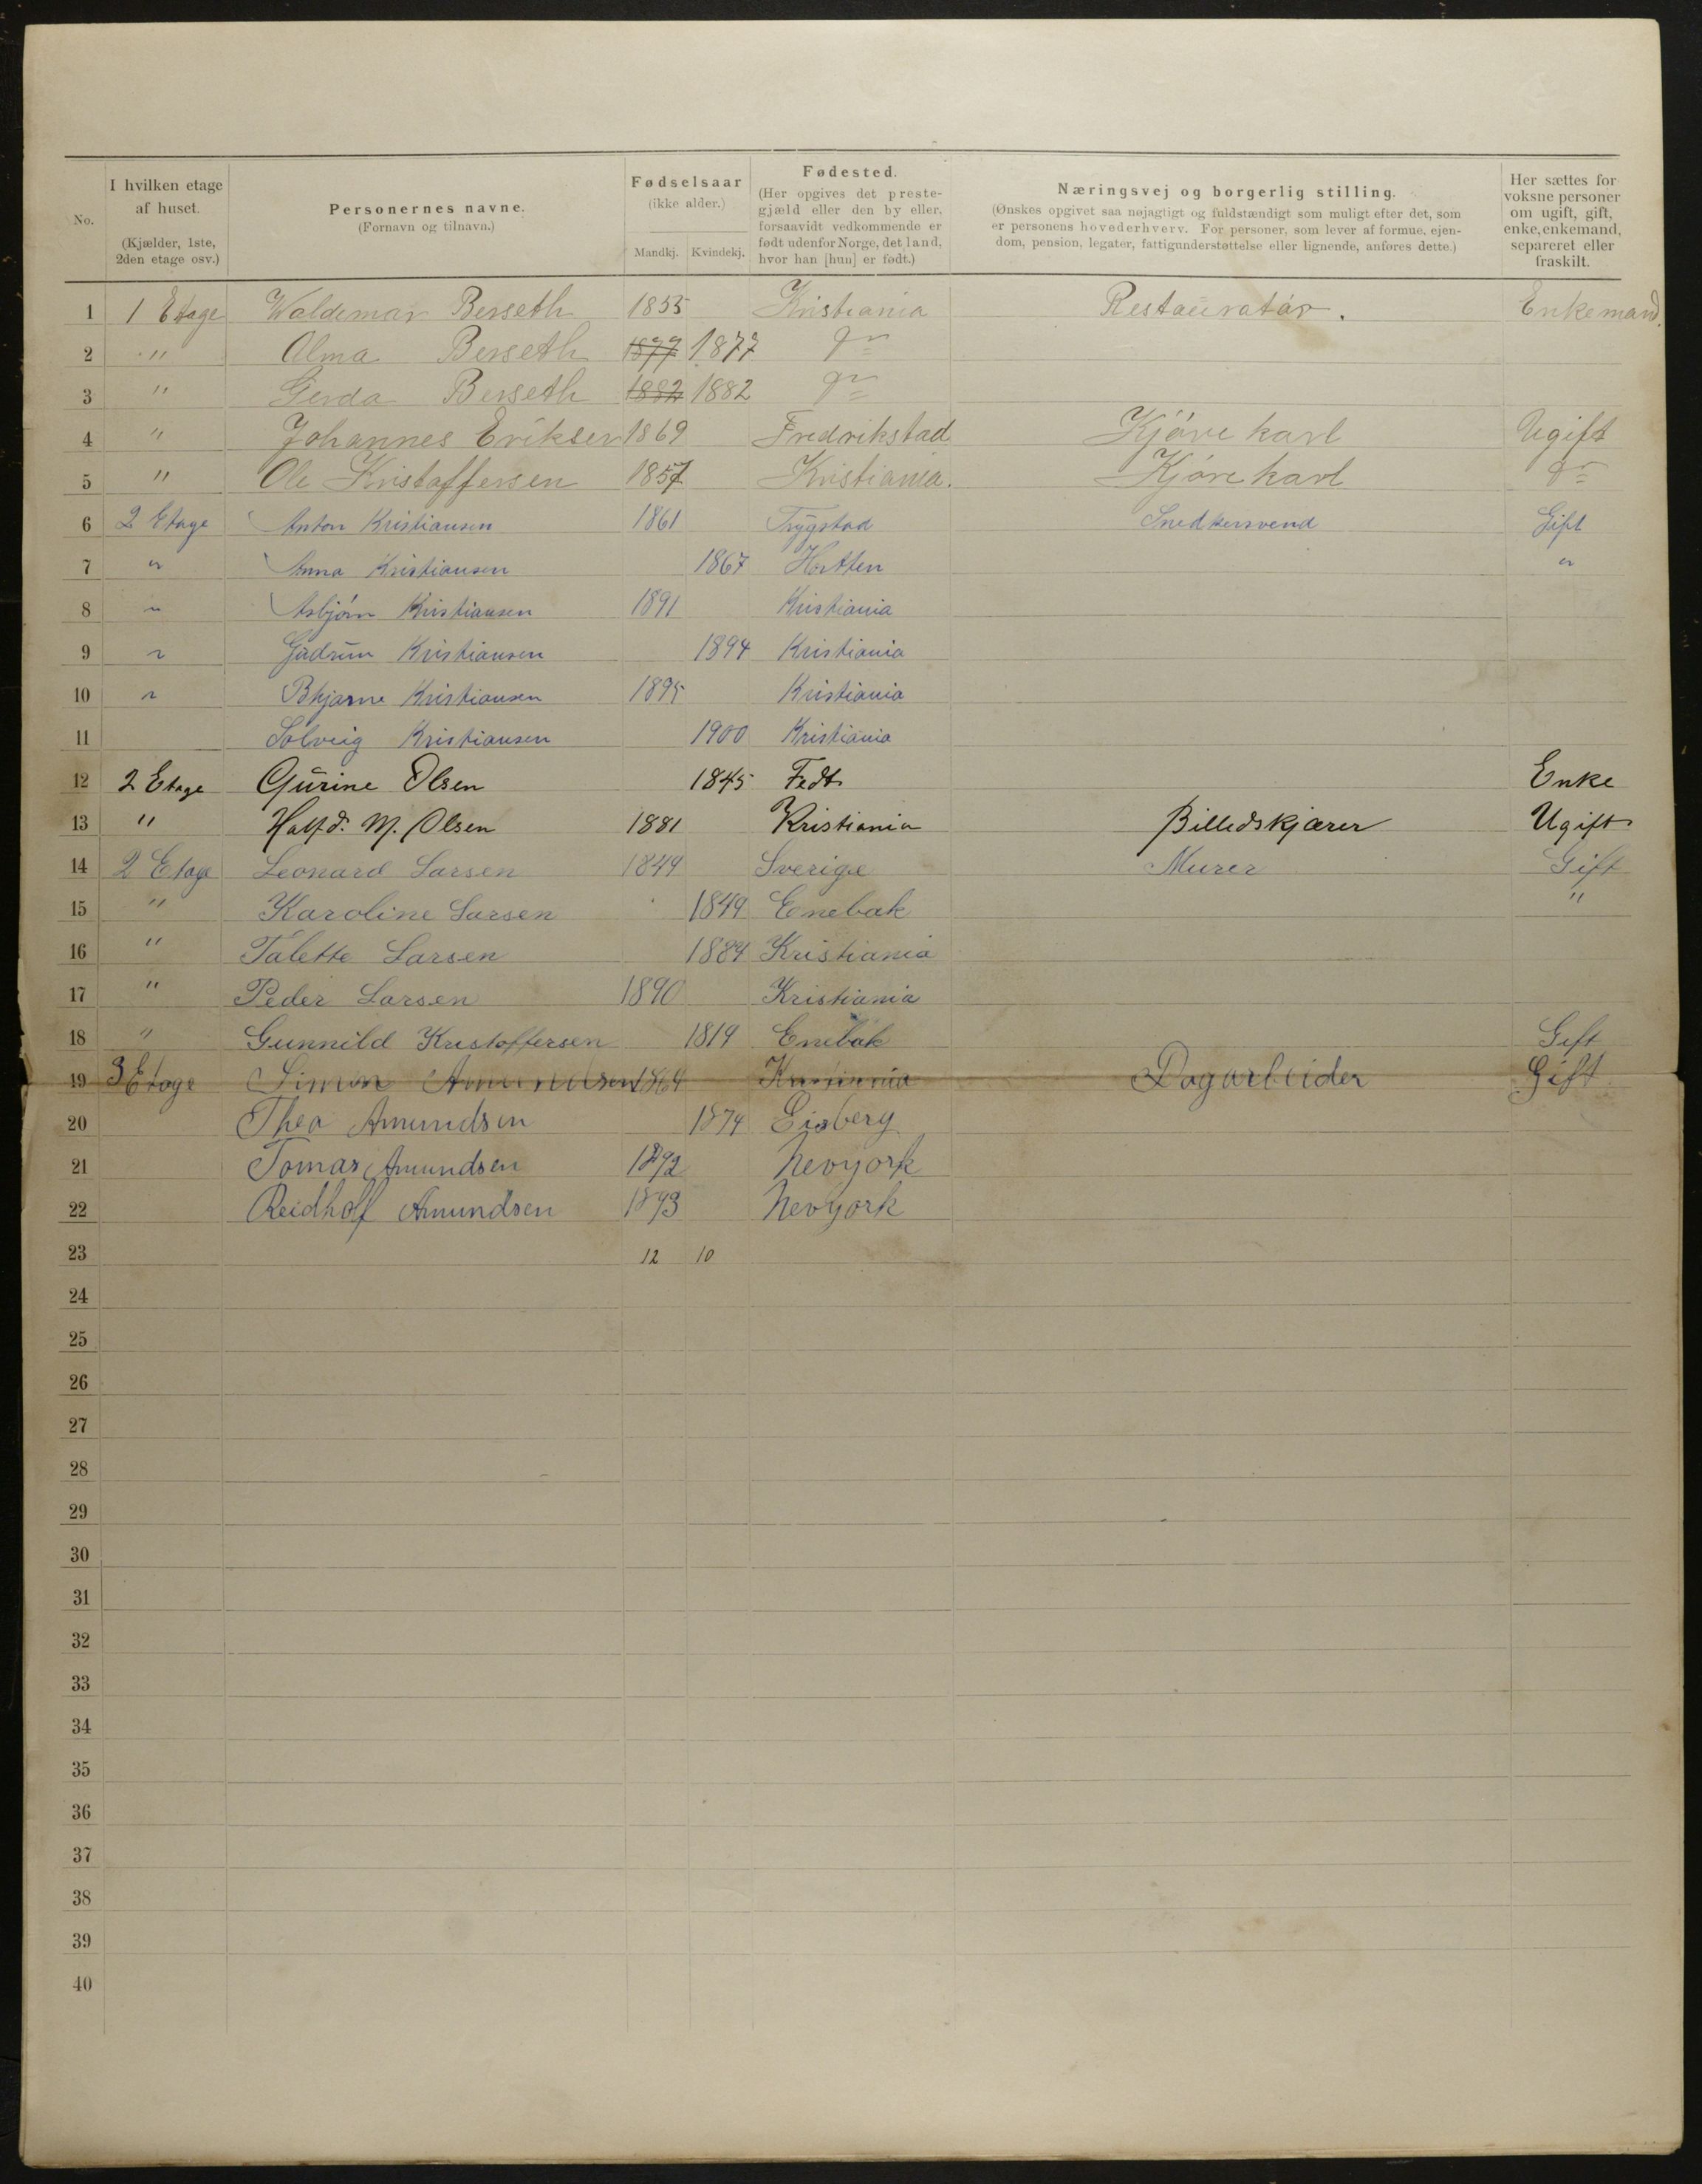 No.
I hvilken etage af huset. (Kjælder, 1ste, 2den etage osv.)
Personernes navne. (Fornavn og tilnavn.)
Fødselsaar (ikke alder.) Mandkj. Kvindekj.
Fødested. (Her opgives det prestegjæld eller den by eller, forsaavidt vedkommende er født udenfor Norge, det land, hvor han [hun] er født.)
Næringsvej og borgerlig stilling. (Ønskes opgivet saa nøjagtigt og fuldstændigt som muligt efter det, som er personens hovederhverv. For personer, som lever af formue, ejendom, pension, legater, fattigunderstøttelse eller lignende, anføres dette.)
Her sættes for voksne personer om ugift, gift, enke, enkemand, separeret eller fraskilt.
1 1 Etage Waldemar Berseth 1855 Kristiania Restauratør. Enkemand.
2 " Alma Berseth 1877 1877
3 " Gerda Berseth 1882 1882
4 " Johannes Eriksen 1869 Fredrikstad Kjøre karl Ugift
5 " Ole Kristoffersen 1857 Kristiania. Kjøre karl
6 2 Etage Anton Kristiansen 1861 Trygstad Snedkersvend Gift
7 " Anna Kristiansen 1867 Hortten "
8 " Asbjørn Kristiansen 1891 Kristiania
9 " Gudrun Kristiansen 1894 Kristiania
10 " Bhjarne Kristiansen 1895 Kristiania
11 Solveig Kristiansen 1900 Kristiania
12 2 Etage Gurine Olsen 1845 Fedt Enke
13 " Halfd. M. Olsen 1881 Kristiania Billedskjærer Ugift
14 2 Etage Leonard Larsen 1849 Sverige Murer Gift
15 " Karoline Larsen 1849 Enebak "
16 " Talette Larsen 1884 Kristiania
17 " Peder Larsen 1890 Kristiania
18 " Gunnild Kristoffersen 1819 Enebak Gift
19 3 Etage Simon Amundsen 1864 Kristiania Dagarbeider Gift
20 Thea Amundsen 1874 Eisberg
21 Tomas Amundsen 1892 Nevyork
22 Reidholf Amundsen 1893 Nevyork
23 12 10
24
25
26
27
28
29
30
31
32
33
34
35
36
37
38
39
40